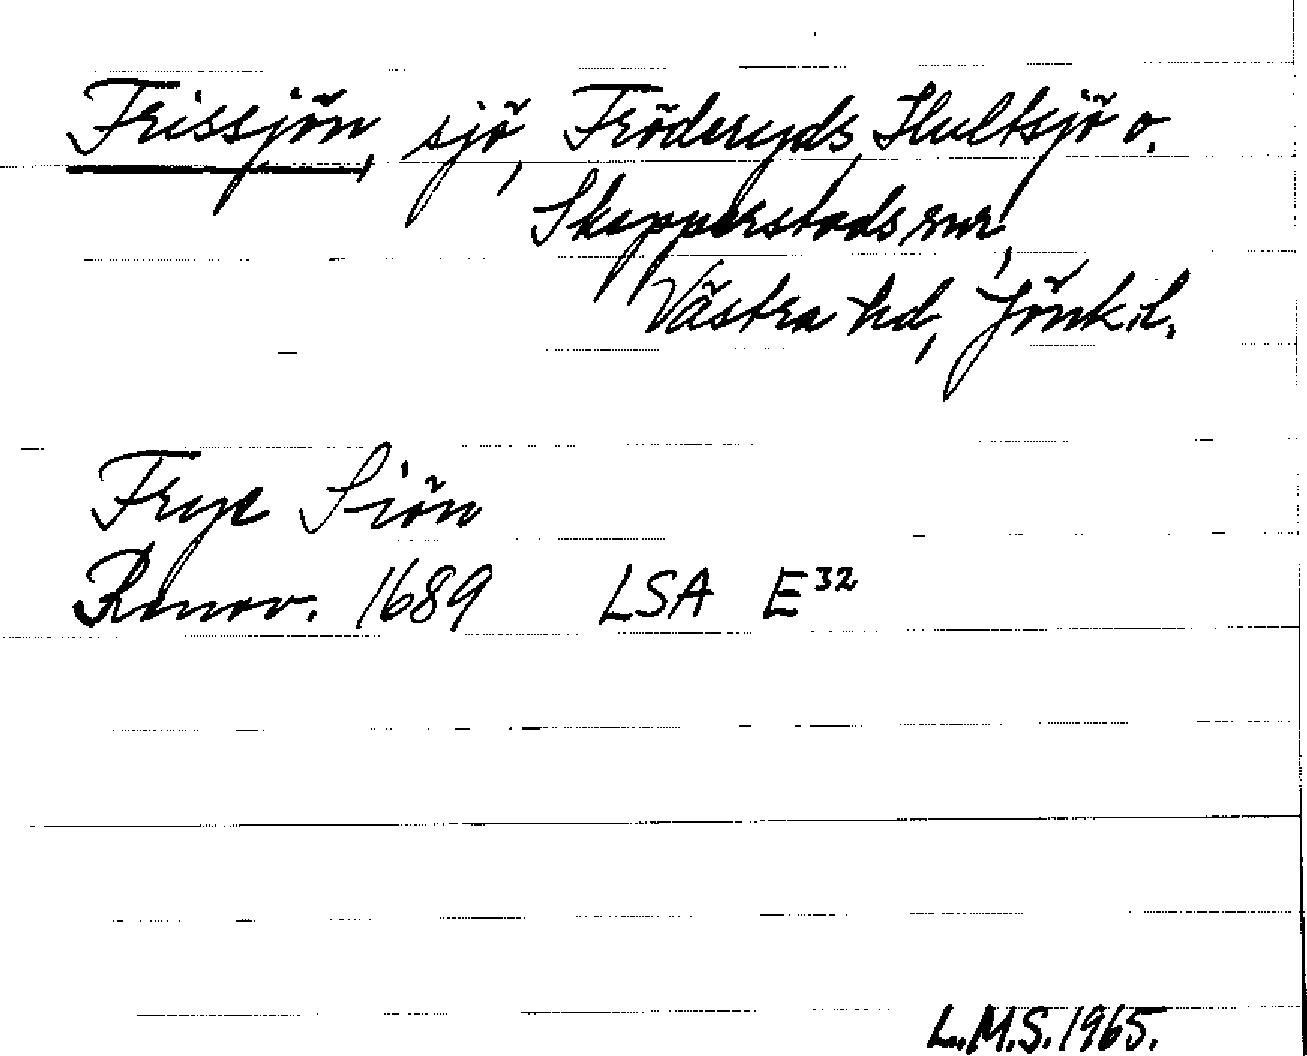 Frissjön, sjö, Fröderyds, Hultsjö o.
Skepperstads snr,
Västra hd, Jönk.l.
Frye Siön
Renov. 1689 LSA E32
L.M.S. 1965.